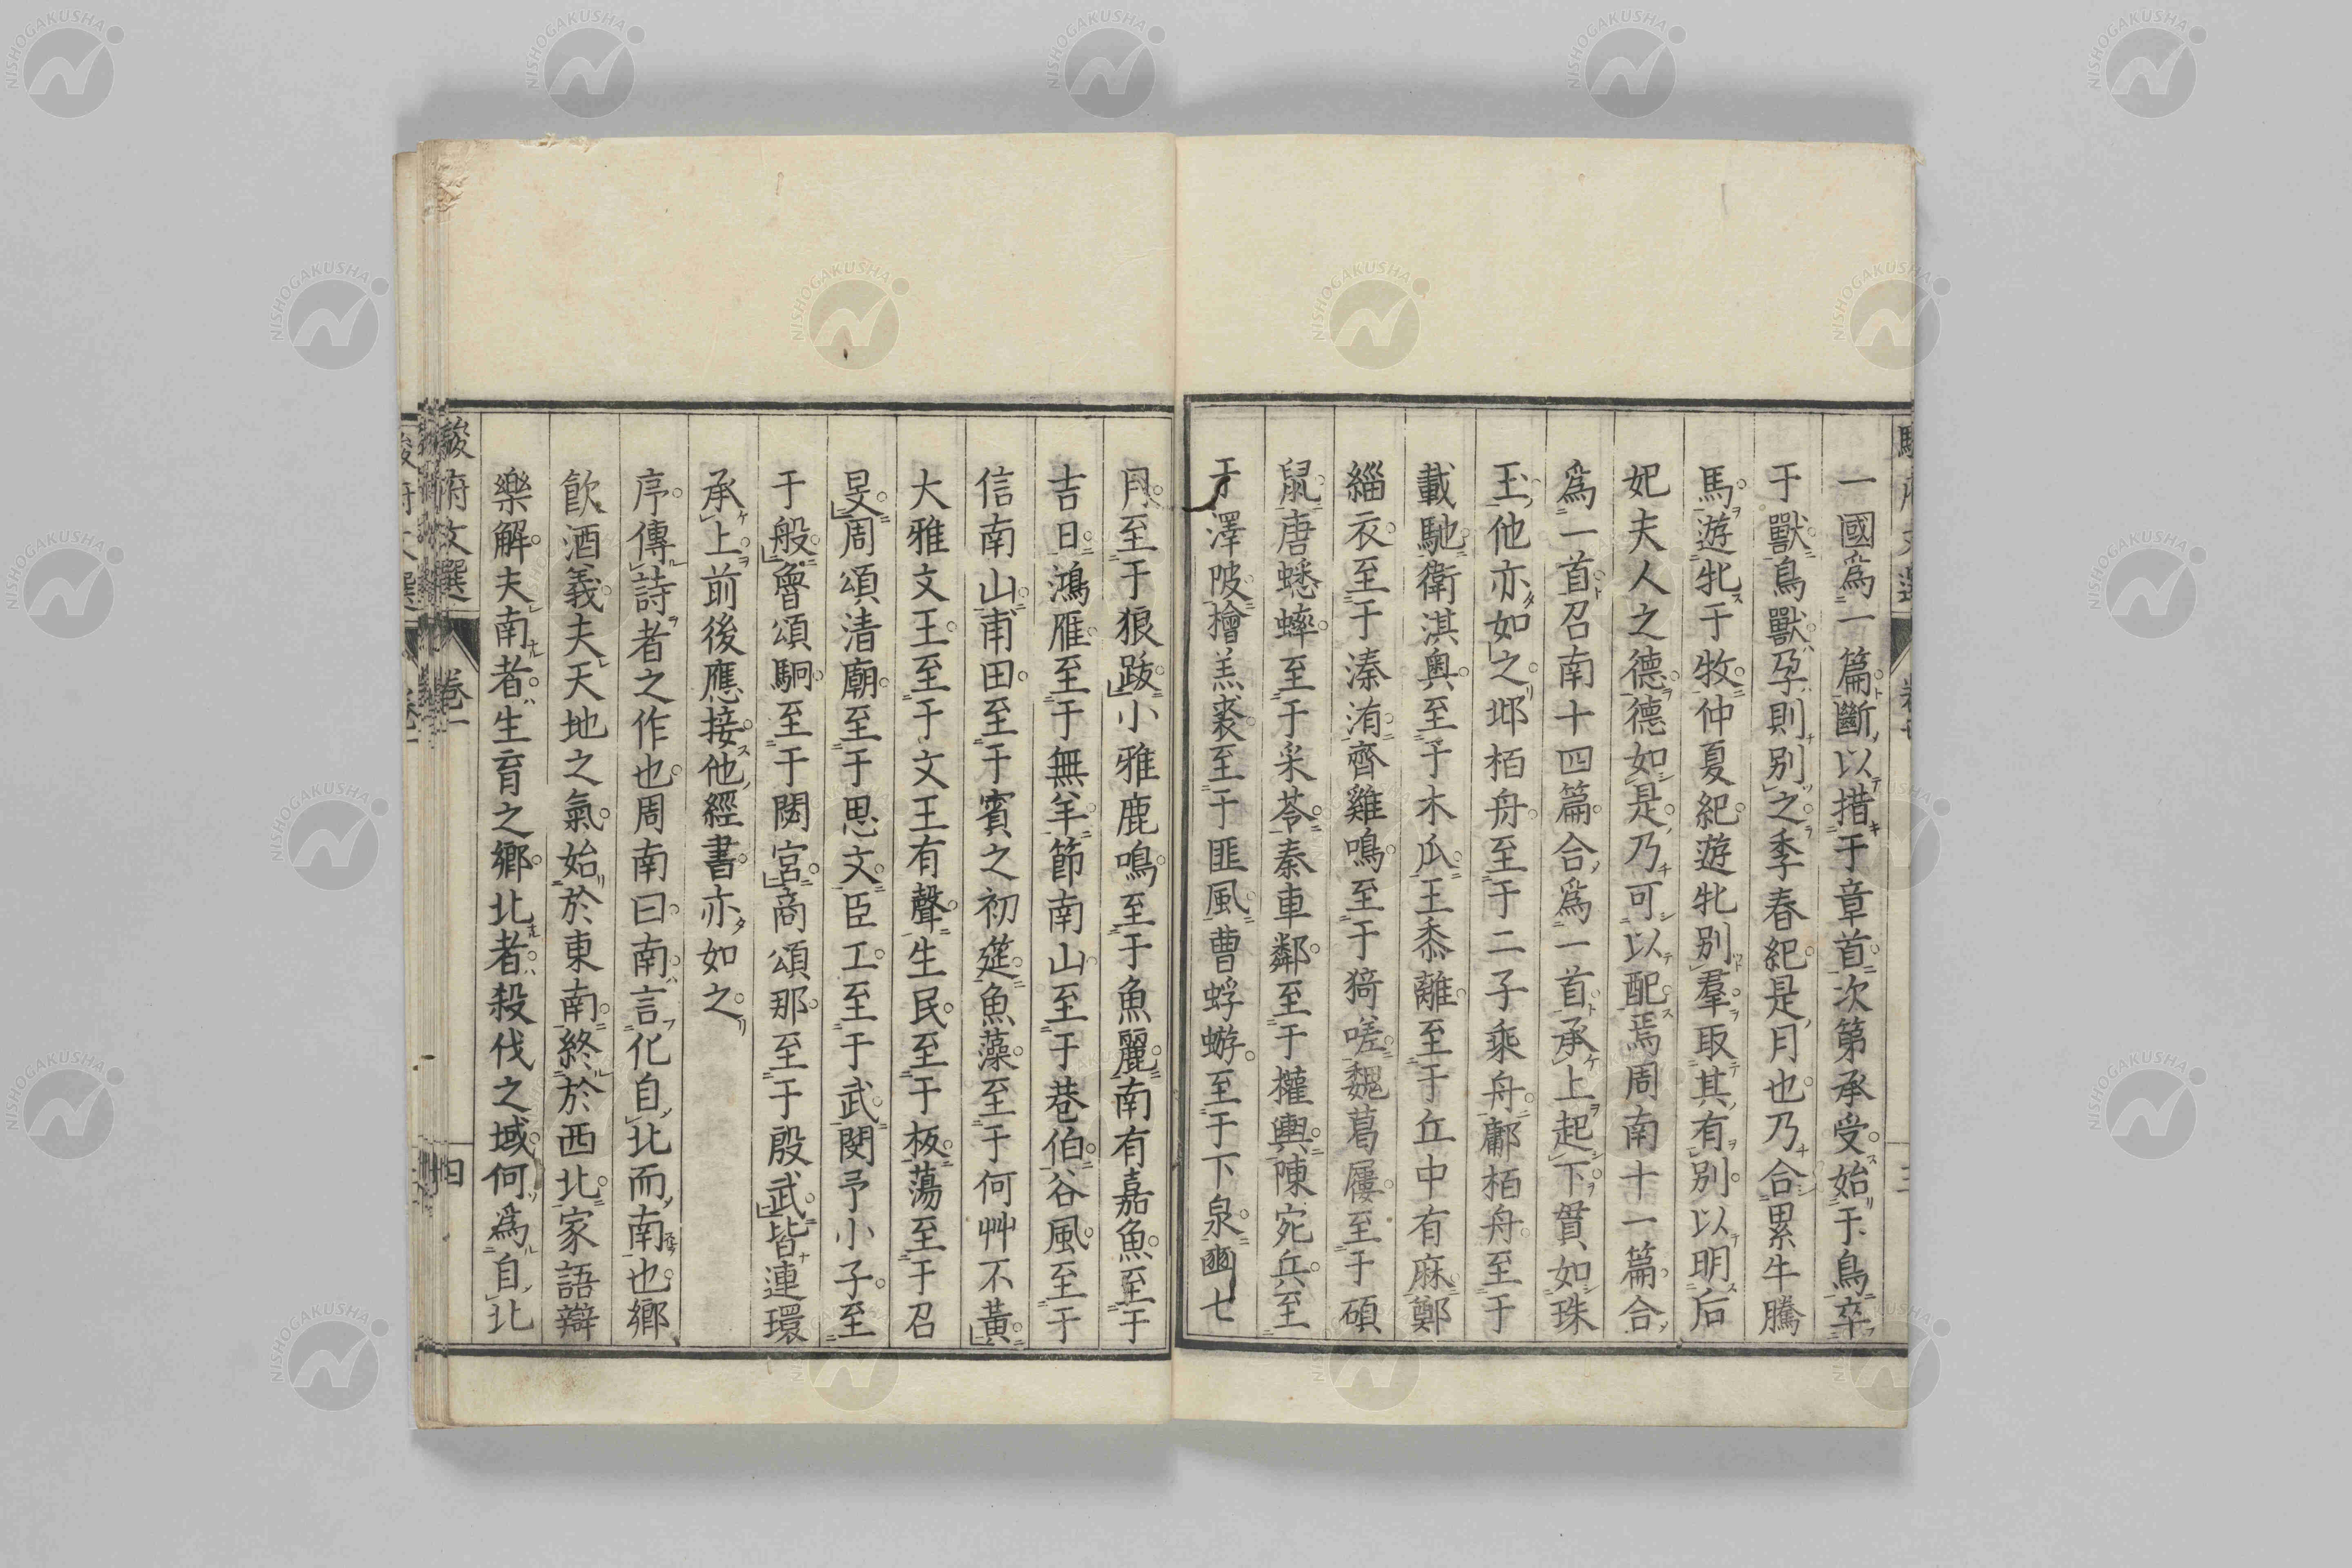 一國爲一篇斷以措于章首次第承受始于鳥卒
于獸鳥獸孕則別之季春紀是月也乃合累牛騰
馬遊牝于牧仲夏紀遊牝別羣取其有別以明后
妃夫人之德德如是乃可以配焉周南十一篇合
爲一首召南十四篇合爲一首承上起下貫如珠
玉他亦如之邶栢舟至于二子乘舟鄘栢舟至于
載馳衛淇奧至于木瓜王黍離至于丘中有麻鄭
緇衣至于溱洧齊雞鳴至于猗嗟魏葛屨至于碩
鼠唐蟋蟀至于采苓秦車鄰至于權輿陳宛丘至
于澤陂檜羔裘至于匪風曹蜉蝣至于下泉豳七
月至于狼跋小雅鹿鳴至于魚麗南有嘉魚至于
吉日鴻雁至于無羊節南山至于巷伯谷風至于
信南山甫田至于賓之初筵魚藻至于何艸不黃
大雅文王至于文王有聲生民至于板蕩至于召
旻周頌清廟至于思文臣工至于武閔予小子至
于般魯頌駉至于閟宮商頌那至于殷武皆連環
承上前後應接他經書亦如之
序傳詩者之作也周南曰南言化自北而南也鄉
飮酒義夫天地之氣始於東南終於西北家語辯
樂解夫南者生育之鄉北者殺伐之域何爲自北
駿府文選 卷一 四
NISHOGAKUSHA